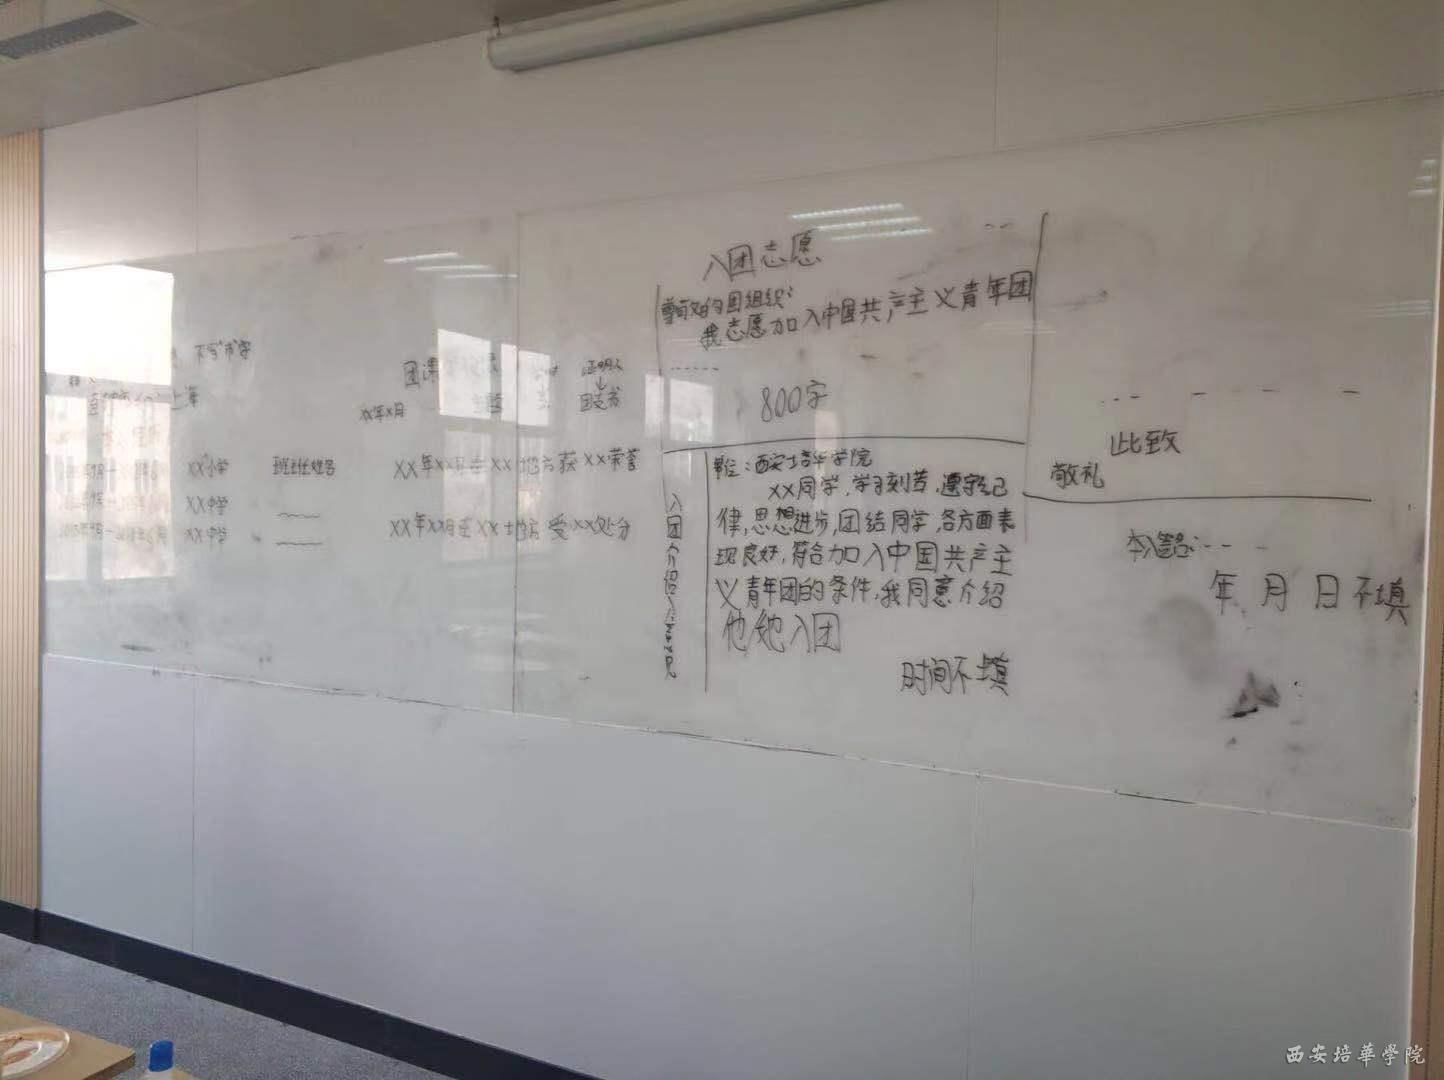 不写"市"字
上海
XX小学 班主任姓名
XX中学
XX中学
团课
证明人
XX年X月 主题 团支书
XX年XX月在XX地方获XX荣誉
XX年XX月在XX地方受XX处分
入团志愿
尊敬的团组织:
我志愿加入中国共产主义青年团
......
800字
入团介绍人意见
单位:西安培华学院
XX同学,学习刻苦,遵守纪
律,思想进步,团结同学,各方面表
现良好,符合加入中国共产主
义青年团的条件,我同意介绍
他/她入团
时间不填
此致
敬礼
年 月 日不填
西安培華學院